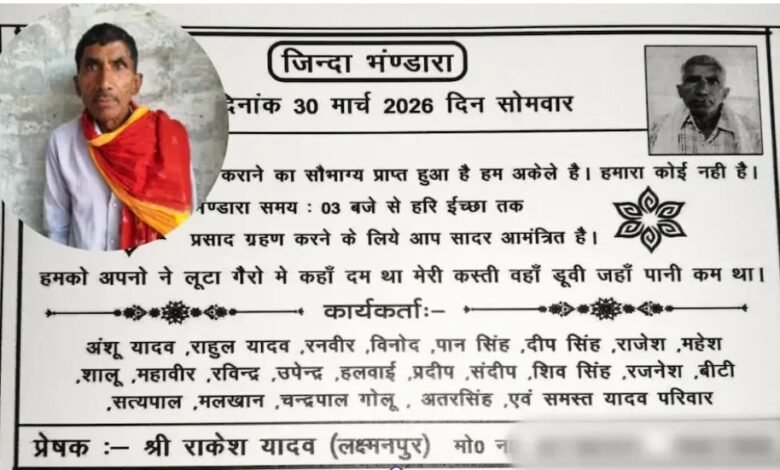 जिन्दा भंण्डारा
दिनांक 30 मार्च 2026 दिन सोमवार
कराने का सौभाग्य प्राप्त हुआ है हम अकेले है। हमारा कोई नही है।
भण्डारा समय : 03 बजे से हरि ईच्छा तक
प्रसाद ग्रहण करने के लिये आप सादर आमंत्रित है।
हमको अपनो ने लूटा गैरो मे कहाँ दम था मेरी कस्ती वहाँ डूवी जहाँ पानी कम था।
कार्यकर्ताः-
अंशू यादव ,राहुल यादव ,रनवीर ,विनोद ,पान सिंह ,दीप सिंह ,राजेश ,महेश
,शालू ,महावीर ,रविन्द्र ,उपेन्द्र ,हलवाई ,प्रदीप ,संदीप ,शिव सिंह ,रजनेश ,बीटी
,सत्यपाल ,मलखान ,चन्द्रपाल गोलू , अतरसिंह ,एवं समस्त यादव परिवार
प्रेषक :– श्री राकेश यादव (लक्ष्मनपुर) मो0